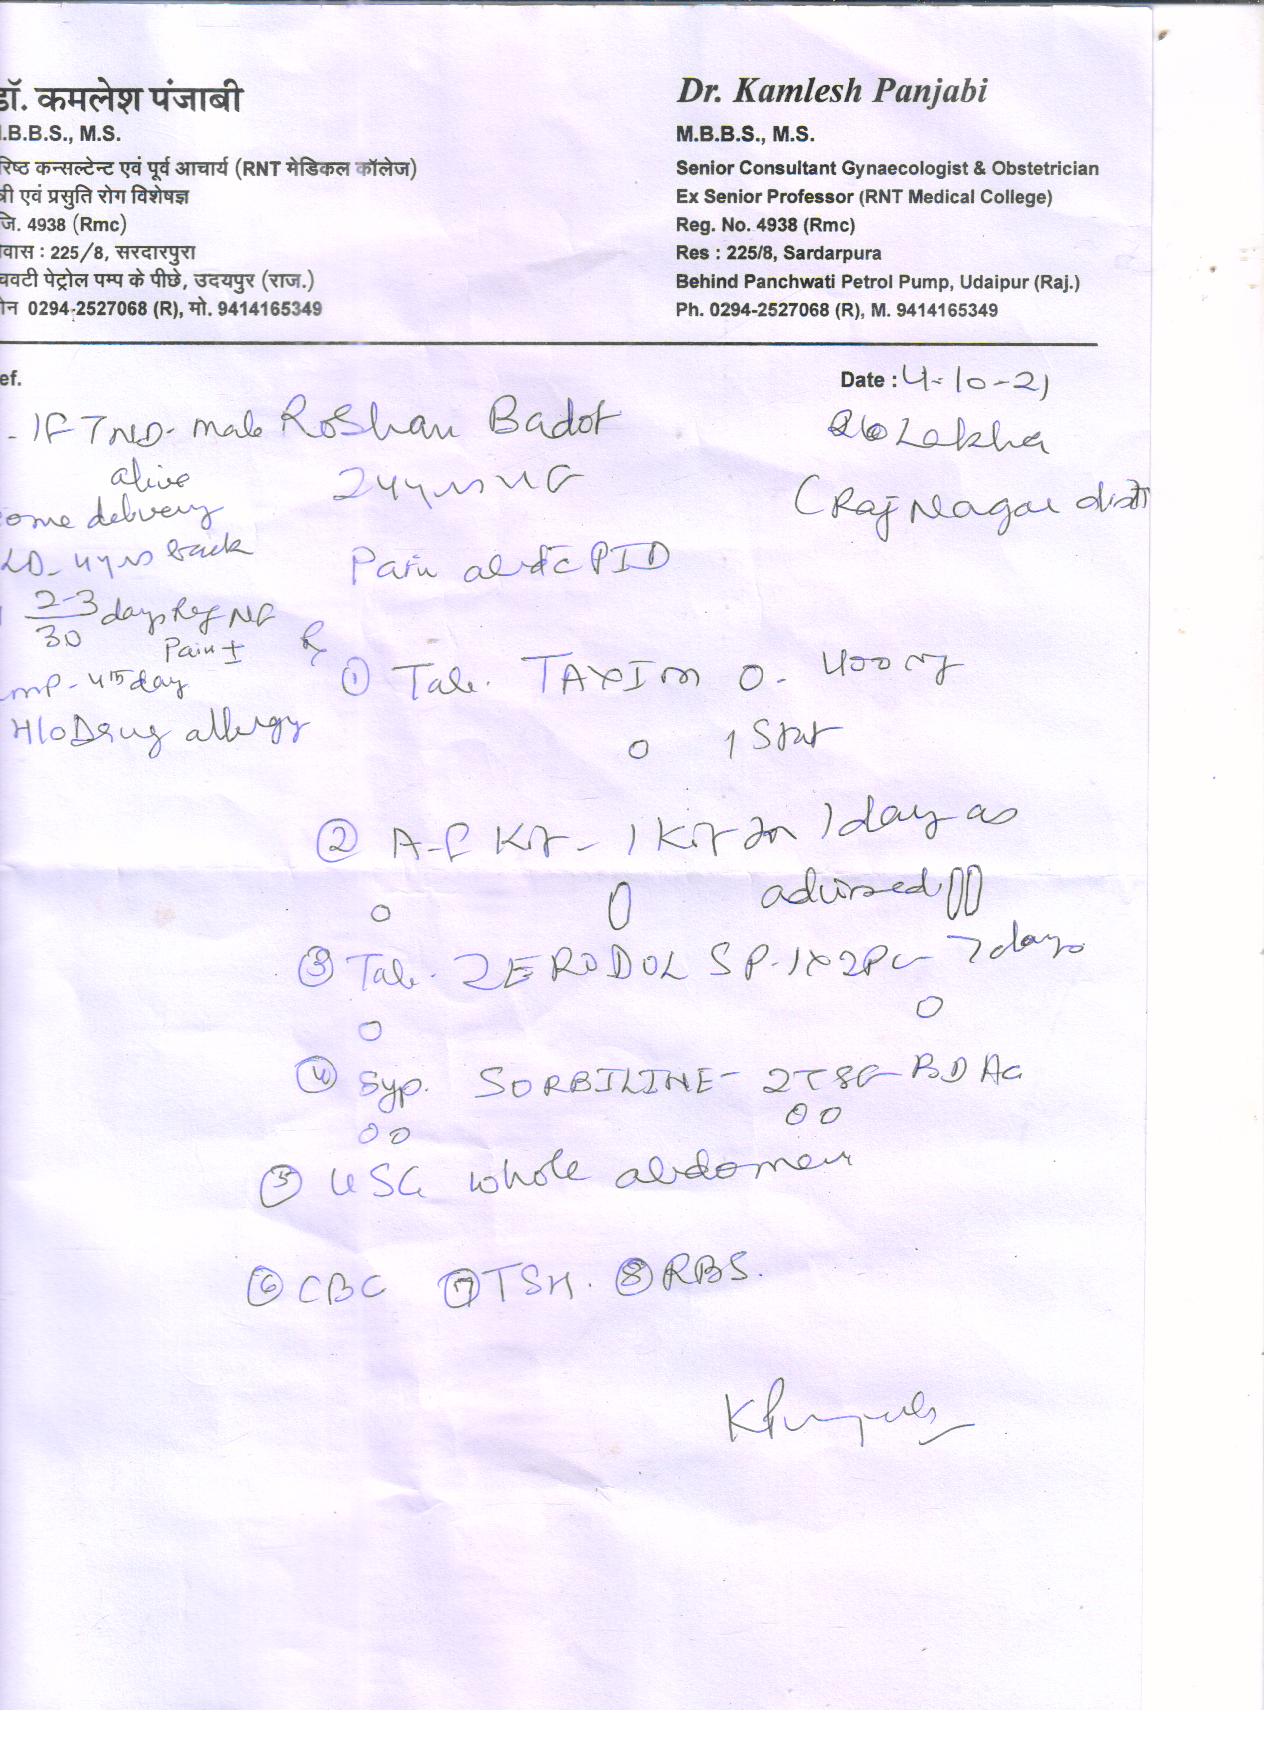 डॉ. कमलेश पंजाबी
.B.B.S., M.S.
रिष्ठ कन्सल्टेन्ट एवं पूर्व आचार्य (RNT मेडिकल कॉलेज)
त्री एवं प्रसुति रोग विशेषज्ञ
जि. 4938 (Rmc)
वास : 225/8, सरदारपुरा
चवटी पेट्रोल पम्प के पीछे, उदयपुर (राज.)
ोन 0294-2527068 (R), मो. 9414165349
Dr. Kamlesh Panjabi
M.B.B.S., M.S.
Senior Consultant Gynaecologist & Obstetrician
Ex Senior Professor (RNT Medical College)
Reg. No. 4938 (Rmc)
Res : 225/8, Sardarpura
Behind Panchwati Petrol Pump, Udaipur (Raj.)
Ph. 0294-2527068 (R), M. 9414165349
ef.
Date : 4-10-21
- 1FTND- male
alive
ome delivery
LD- 4yrs back
2-3/30 days Reg NF
Pain ±
mP- 4th day
H/o Drug allergy
Roshan Badot
24yrs
R/o Lakha
(RajNagar distt
Pain abd c̄ PID
Rx
① Tab. TAXIM O- 400 mg
1 Stat
② A-F Kit- 1 Kit in 1 day as
advised
③ Tab. ZERODOL SP- 1x2 PC- 7 days
④ Syp. SORBILINE- 2 TSF BD AC
⑤ USG whole abdomen
⑥ CBC ⑦ TSH. ⑧ RBS.